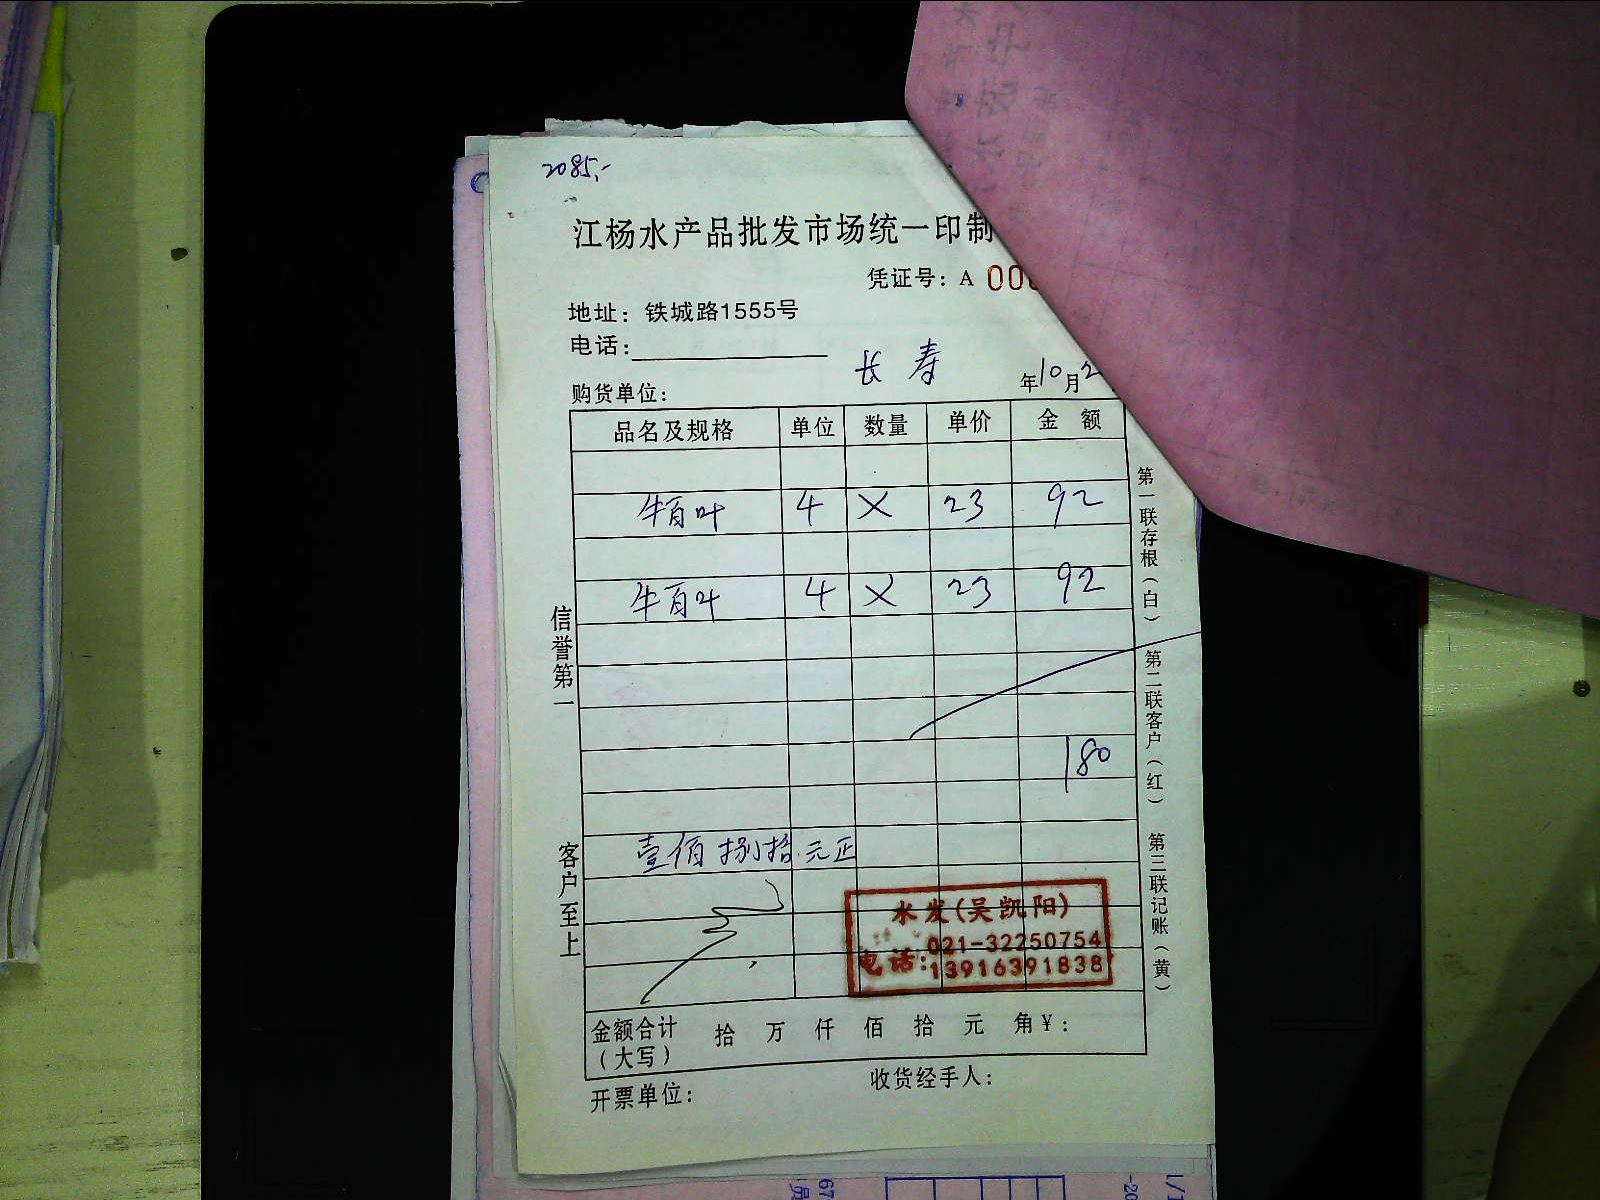 2085,-
江杨水产品批发市场统一印制
凭证号：A 00
地址：铁城路1555号
电话：
长寿
购货单位： 年10月2
品名及规格 单位 数量 单价 金 额
牛百叶 4 X 23 92
牛百叶 4 X 23 92
180
壹佰捌拾元正
水发(吴凯阳)
电话:021-32250754
13916391838
金额合计（大写） 拾 万 仟 佰 拾 元 角￥：
开票单位： 收货经手人：
信誉第一
客户至上
第一联存根（白）
第二联客户（红）
第三联记账（黄）